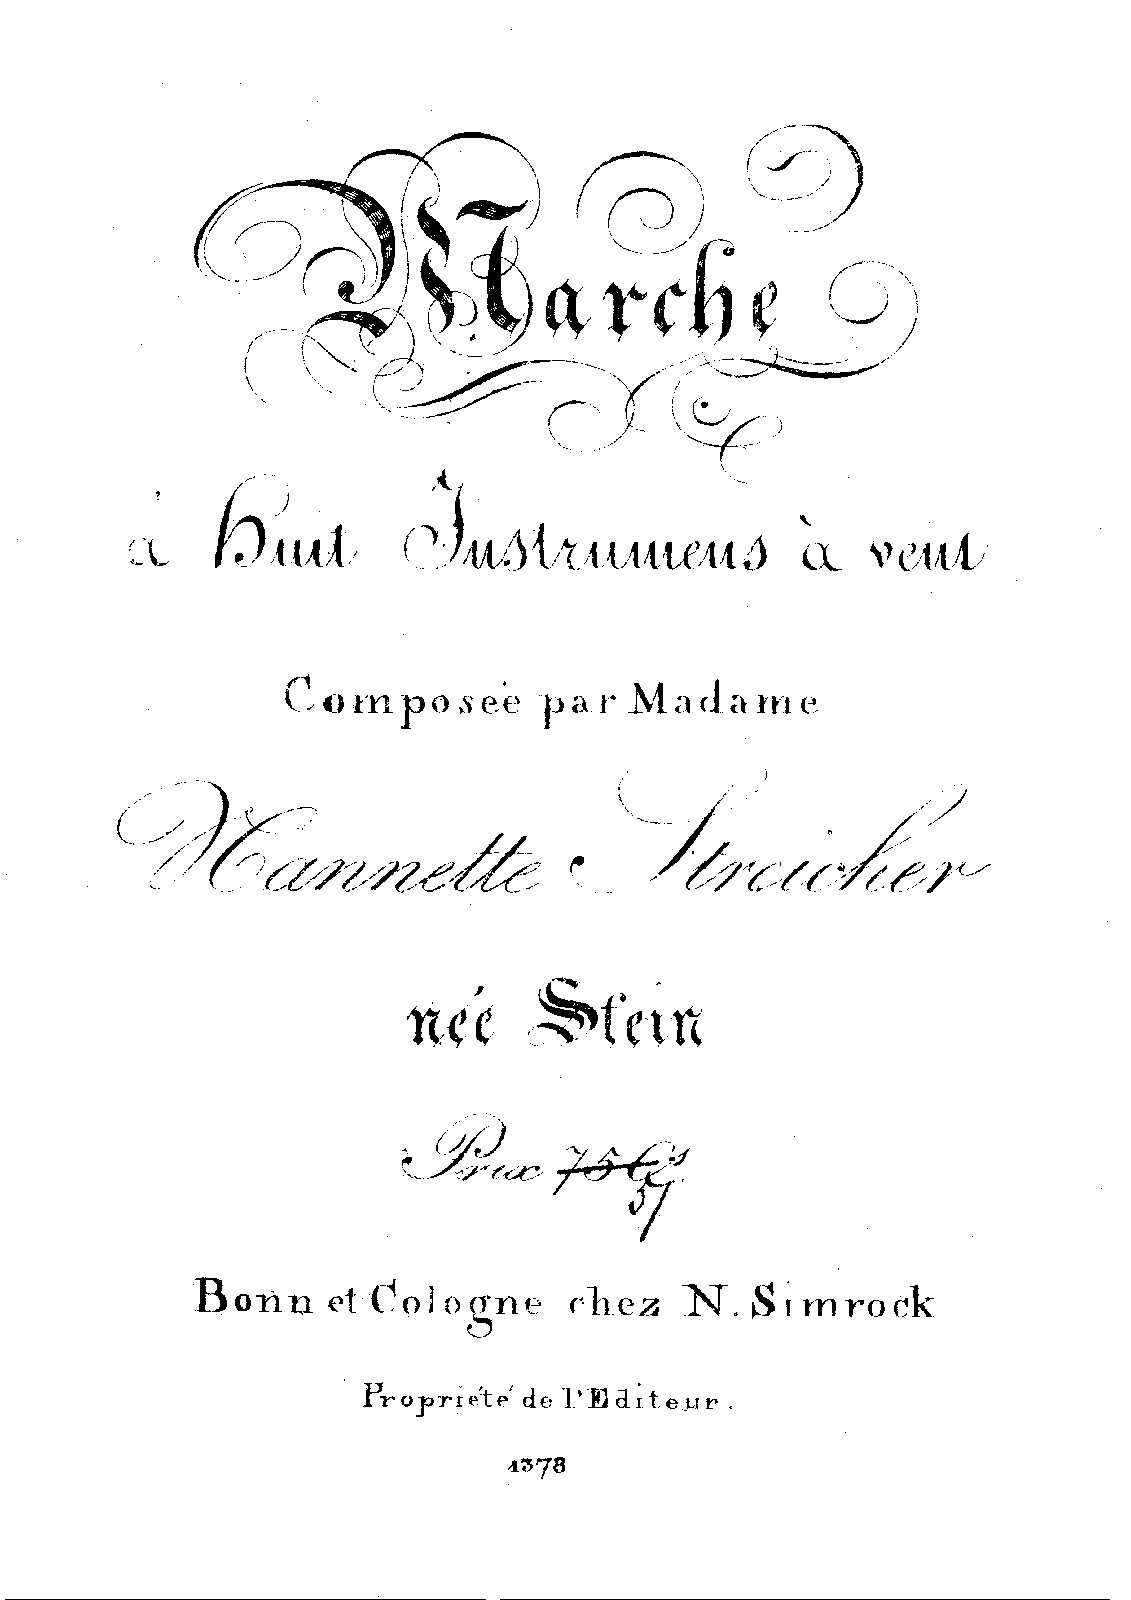 Marche
à Huit Instrumens à vent
Composée par Madame
Nannette Streicher
née Stein
Prix 75 Cs
Bonn et Cologne chez N. Simrock
Propriété de l'Editeur.
1378